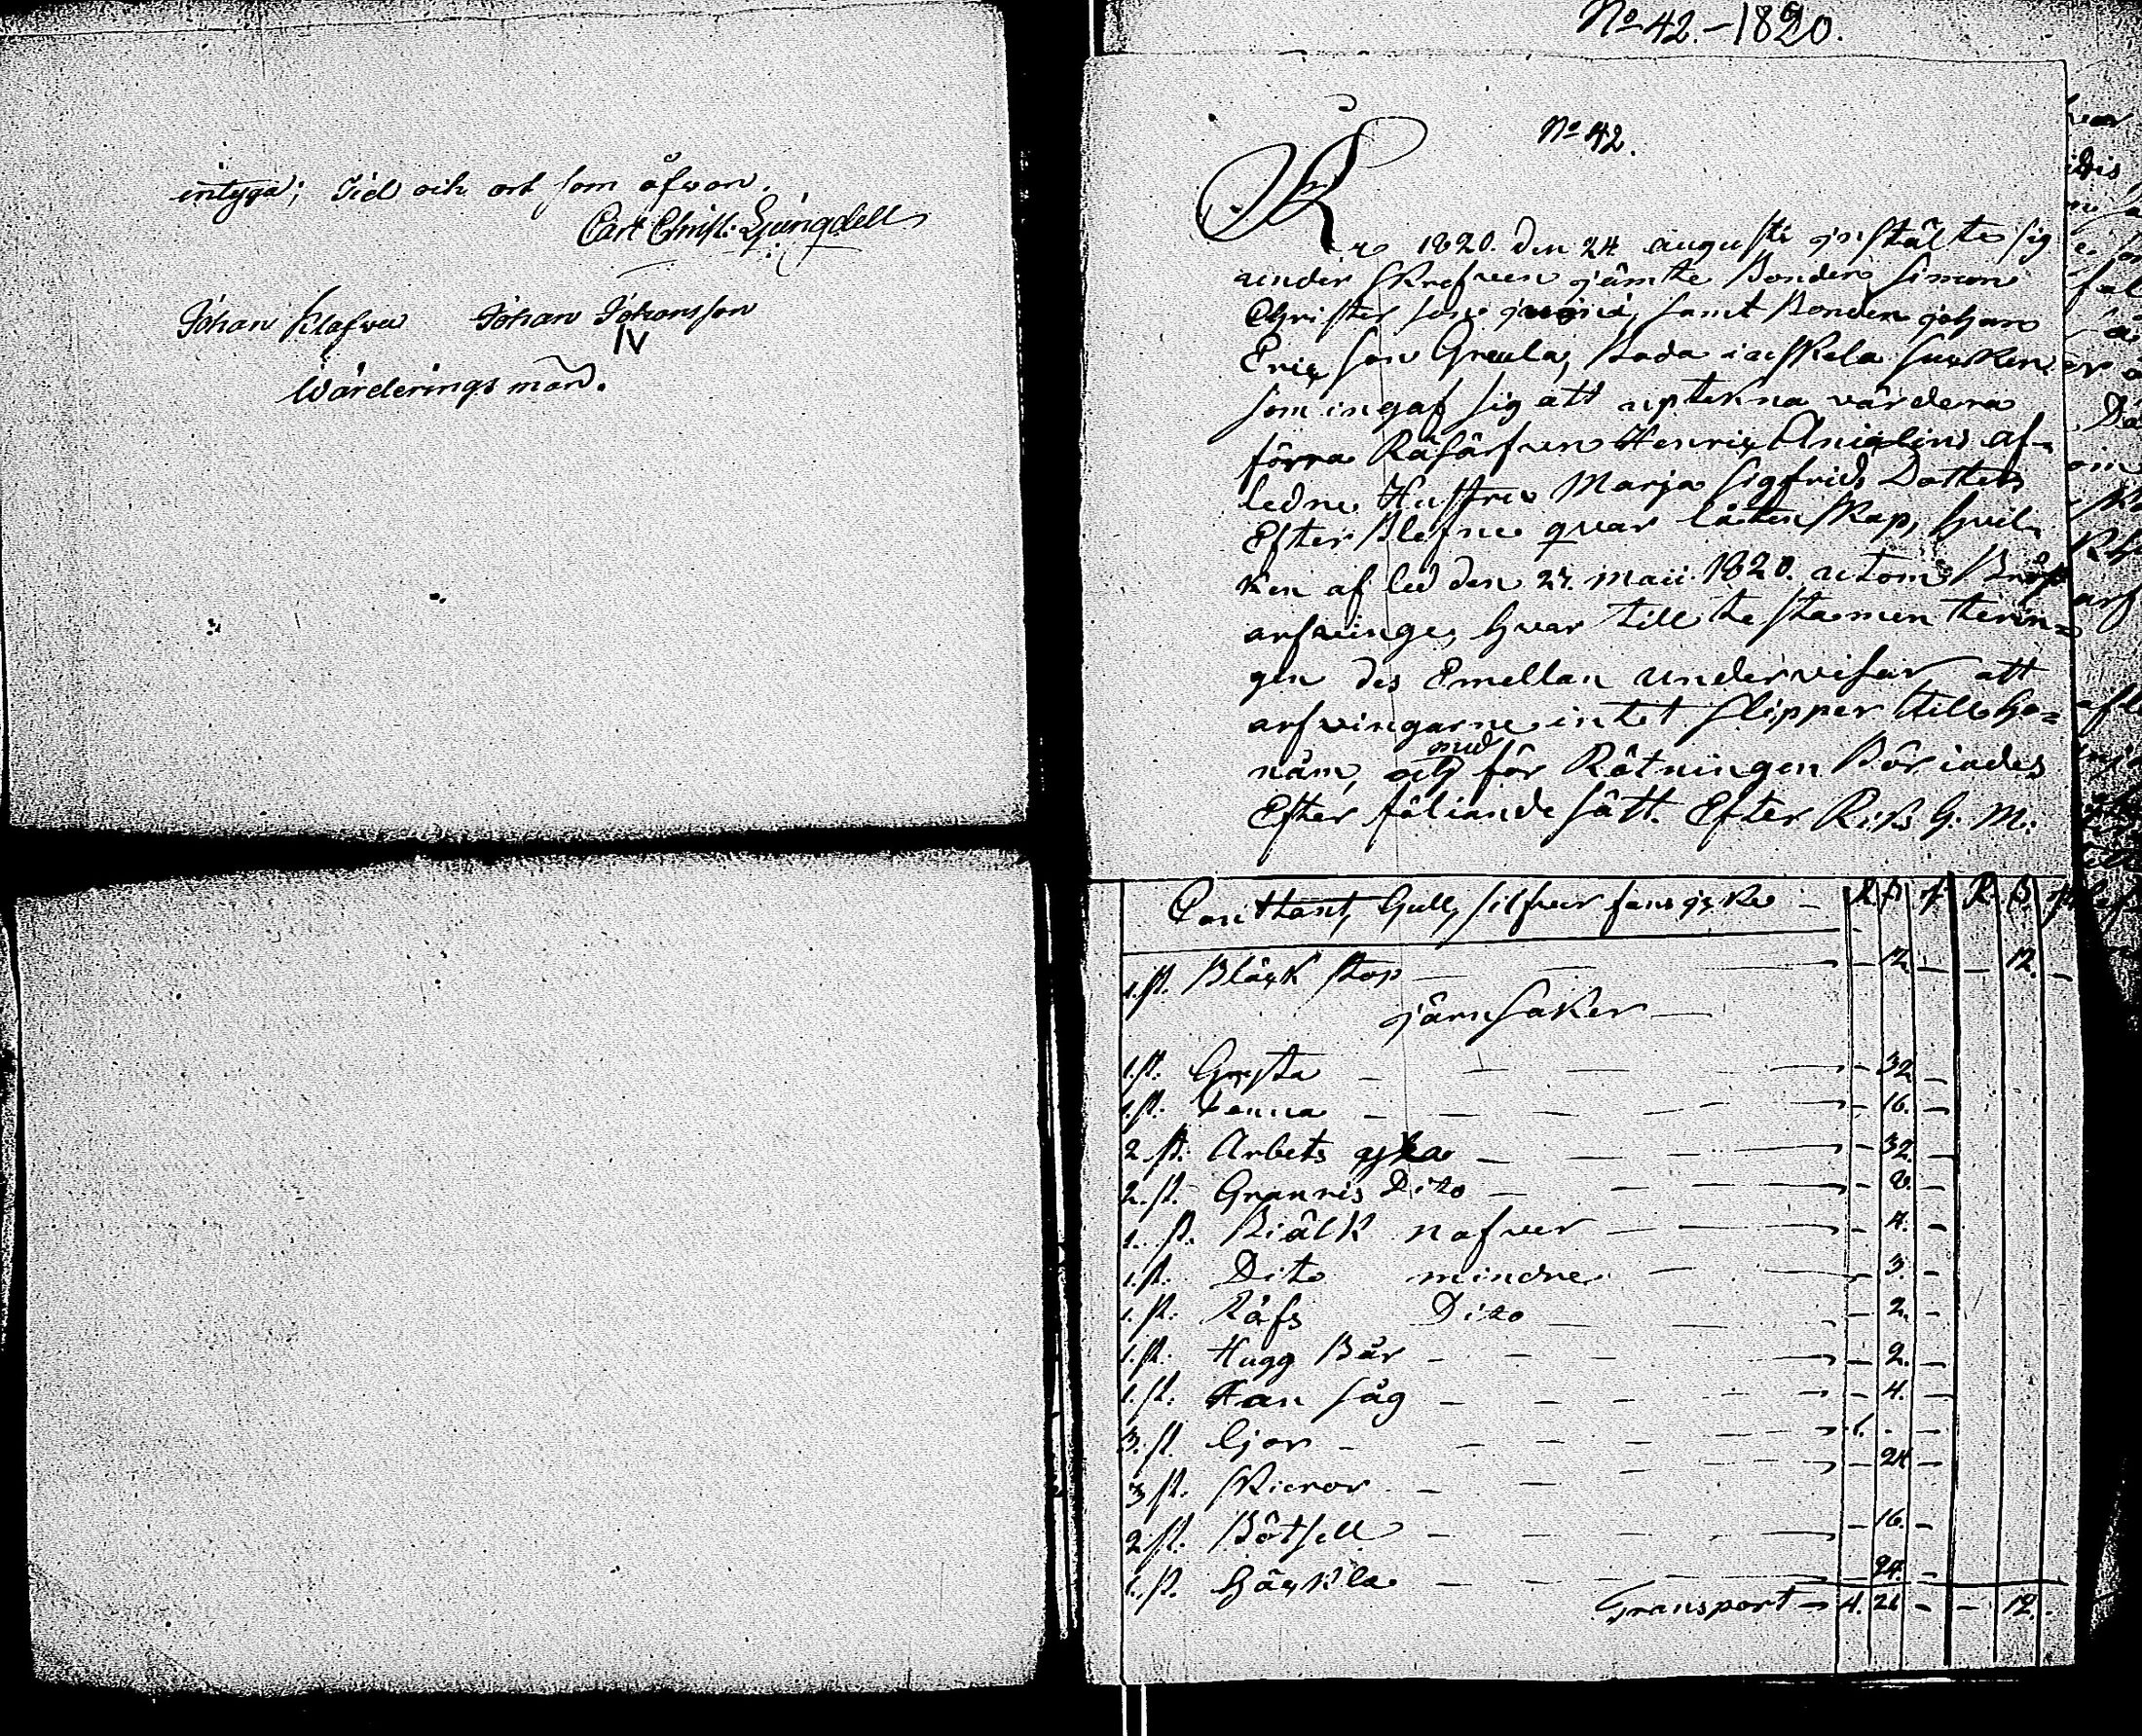 intyga; Tid och ort som åfwan.
Carl Christ: Ljungdell
Johan Klafwu Johan Johansson
IV
Wärderings män.
No 42.-1820.
No 42.
År 1820. den 24 augusti instälte sig
under skrefven jämte Bonden Simon
Christer son samt Bonden johan
Eric son Greula, Bada i uskela sucken
som ingaf sig att uptekna värdera
förra Råhärfven Henric af-
ledne Hustru Marja Sigfrids Dotters
Efter Blefne qvar låtenskap, hvil-
ken af led den 27. maii 1820. utom Bröst
arfvinge, hvar till testamenterin=
gen des Emellan undervisar att
arfvingarne intet slipper till ho=
nåm, och med för Rätningen Böriades
Efter föliande sätt. Efter R: G: M:
Conttant, Gull, silfver fans icke - R ß r R. ß. r
1. st. Bläck stop - - 12. - - 12. -
järnsaker -
1. st. Gryta - - 32 -
1. st. Panna - - 16. -
2. st. Arbets yxa - - 32. -
2. st. Granris Dito - - 8. -
1. st. Biälk nafver - - 4. -
1. st. Dito mindre - - 3. -
1. st. Räfs Dito - - 2. -
1. st. Hugg Bår - - 2. -
1. st. Han såg - - 4. -
3. st. Ljar - 1. - -
3 st. Skieror - - 24 -
2 st. Bötsell - - 16. -
1. st. häckla - - 24. -
Transport - 4. 21 - - 12. -